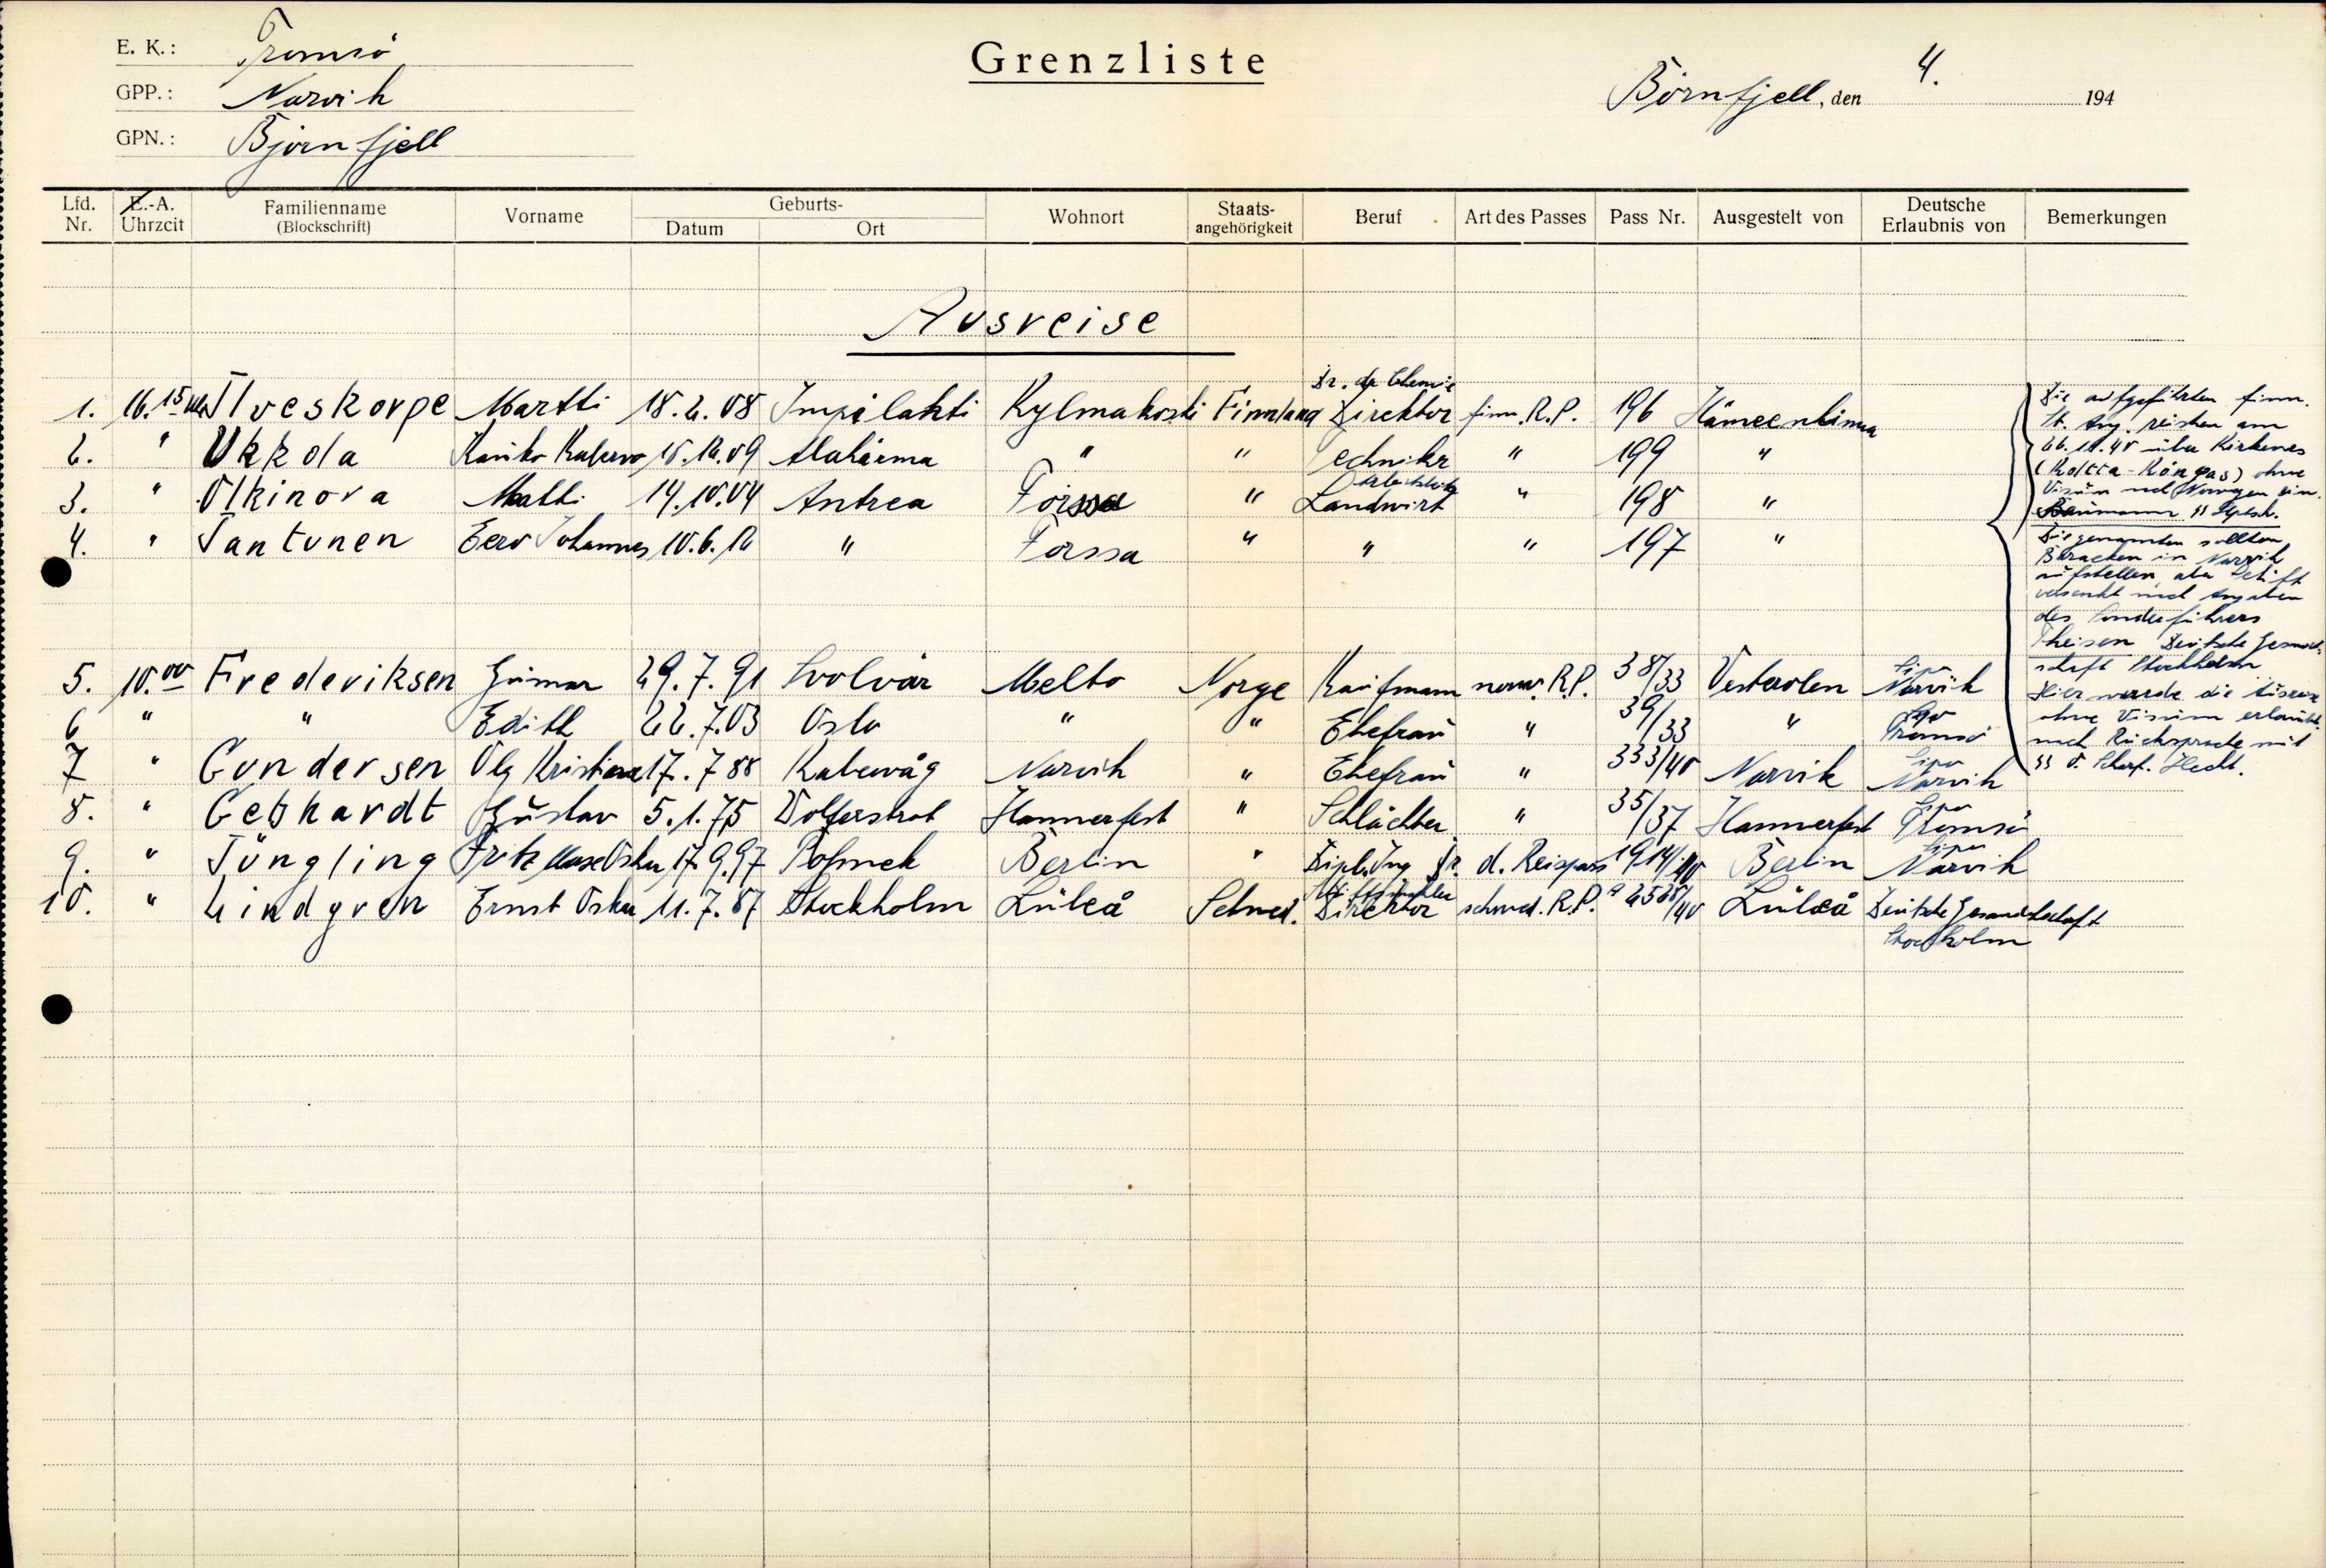 E. K.: Tromsö
Grenzliste
GPP.: Narvik
Börnfjell, den 4. 194
GPN.: Björnfjell
Lfd. Nr. E.-A. Uhrzeit Familienname (Blockschrift) Vorname Geburts- Datum Ort Wohnort Staats- angehörigkeit Beruf Art des Passes Pass Nr. Ausgestelt von Deutsche Erlaubnis von Bemerkungen
Ausreise
Dr. der Chemie
1. 16.15 Ilveskorpe Martti 18.2.08 Impilahti Kylmakoski Finnland Direktor finn. R.P. 196 Hämeenlinna
2. " Ukkola Kauko Kalervo " " Techniker " 199 "
3. " Olkinora Matti 14.10.04 Antrea Forssa " Landwirt " 198 "
4. " Tantunen Eero Johannes " Forssa " " " 197 "
5. 10.00 Frederiksen Gunnar 29.7.91 Svolvär Melbo Norge Kaufmann norw. R.P. 38/33 Vesterolen Sipo Narvik
6 " " Edith 22.7.03 Oslo " " Ehefrau " 39/33 " Sipo Tromsö
7 " Gundersen 17.7.88 Kabelvåg Narvik " Ehefrau " 333/40 Narvik Sipo Narvik
8. " Gebhardt Gustav 5.1.75 Hammerfest " Schlächter " 35/37 Hammerfest Sipo Tromsö
9. " Jüngling Fritz 17.9.97 Berlin " Dipl. Ing. Dr. d. Reisepass 1914/40 Berlin Sipo Narvik
10. " Lindgren Ernst Oskar 11.7.87 Stockholm Luleå Schwed. Direktor schwed. R.P. Luleå Deutsche Gesandtschaft
Stockholm
Die aufgeführten finn.
St. Ang. reisten am
26.11.40 über Kirkenes
(Koltta-Köngas) ohne
Visum nach Norwegen ein.
Baumann SS Hptsch.
Die genannten sollten
Baracken in Narvik
aufstellen, aber Schiff
versenkt nach Angaben
des Sonderführers
Theisen Deutsche Gesandt-
schaft Stockholm
Hier wurde die Ausreise
ohne Visum erlaubt
nach Rücksprache mit
SS O. Scharf. Hecht.